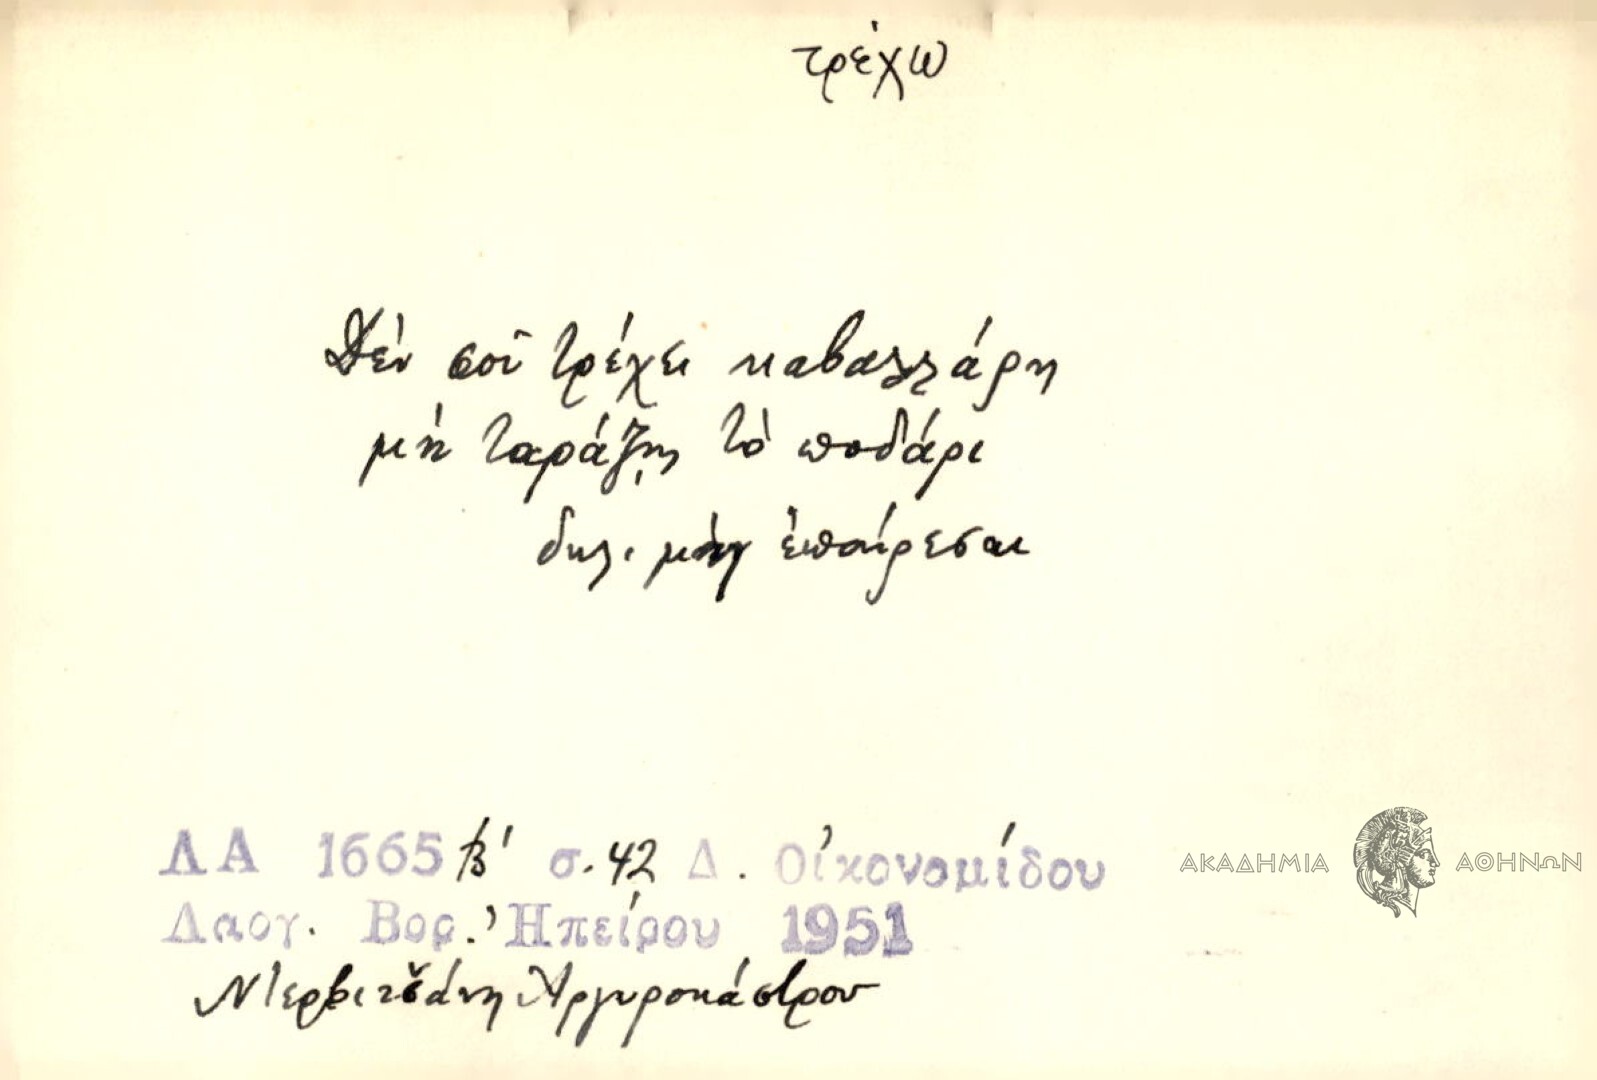 τρέχω
Δὲν σοῦ τρέχει καβαλλάρη
μὴ ταράζῃς τὸ ποδάρι
δηλ. μὴν ἐπαίρεσαι
ΛΑ 1665 β' σ. 42 Δ. Οἰκονομίδου
Λαογ. Βορ. Ἠπείρου 1951
Ντερβιτσ̌άνη Ἀργυροκάστρου
ΑΚΑΔΗΜΙΑ ΑΘΗΝΩΝ